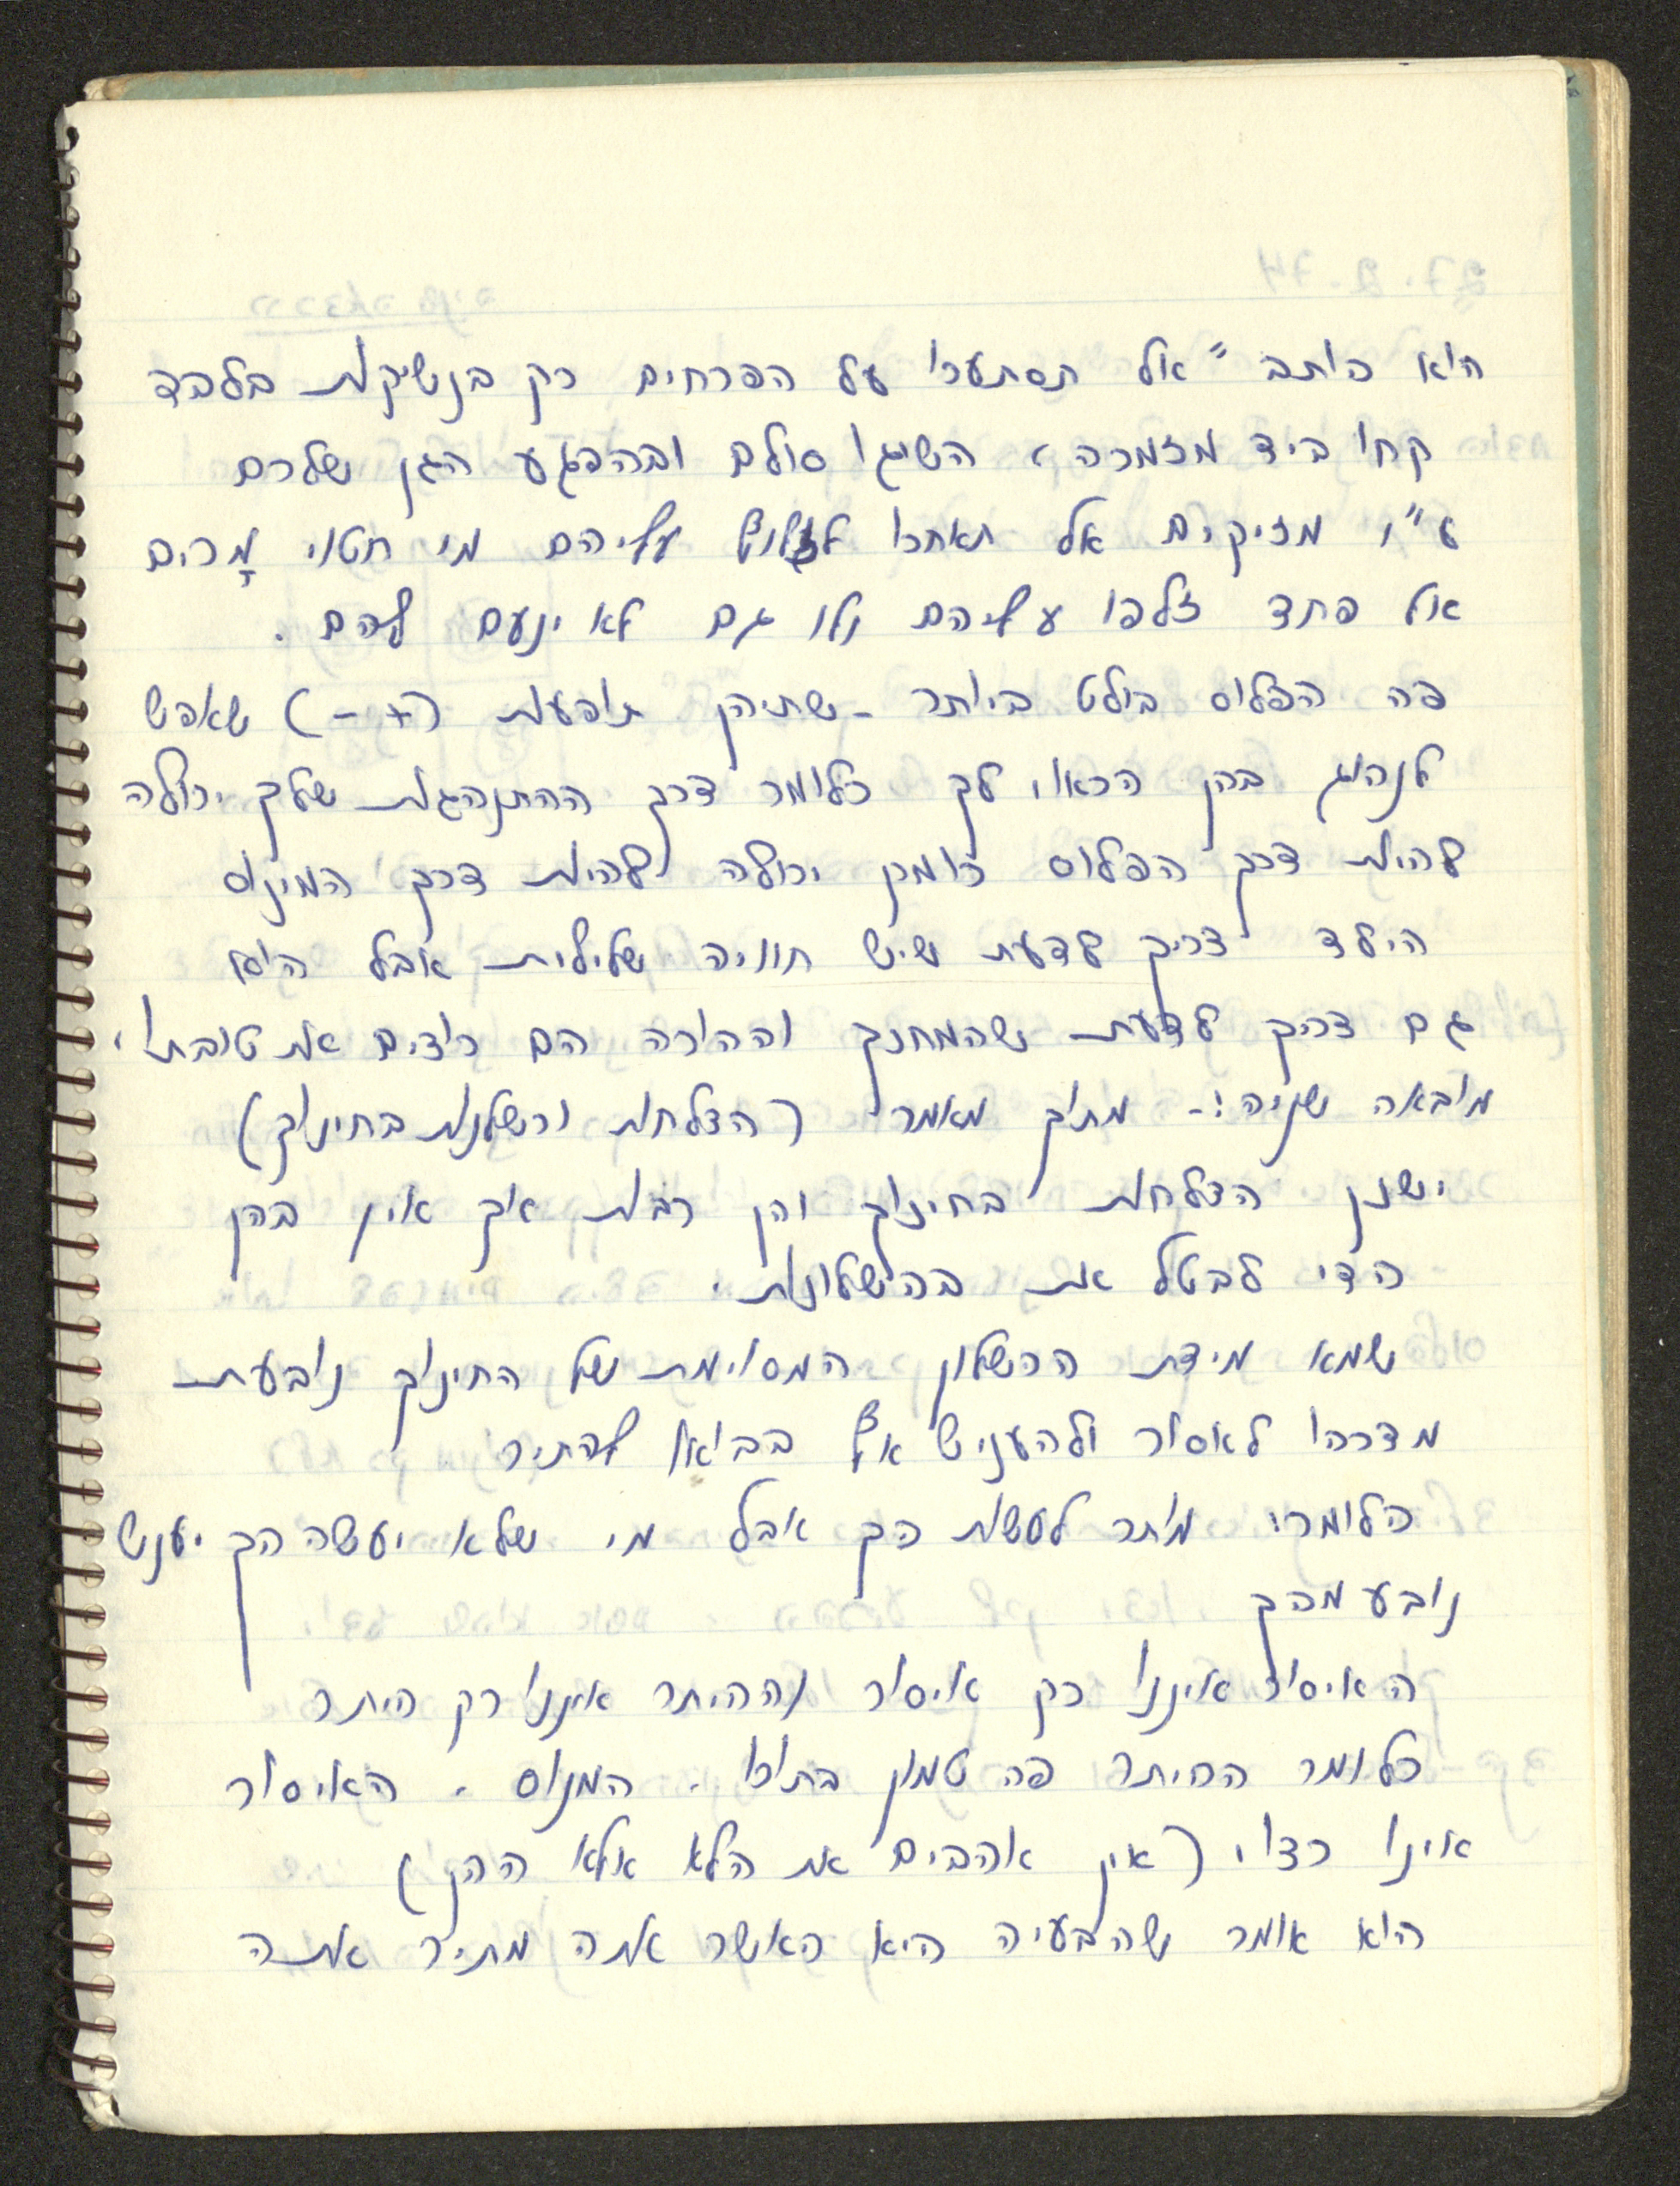 הוא כותב "אל תסתערו על הפרחים רק בנשיקות בלבד
קחו ביד מזמרה, השיגו סולם ובהפגע הגן שלכם
ע"י מזיקים אל תאחרו לזלוף עליהם מי חטוי מָרים
אל פחד זלפו עליהם ולו גם לא ינעם להם.
פה הפלוס בולט ביותר - שתיהן תופעות (+ -) שאפש
לנהוג בהן הראוי לך כלומר דרך ההתנהגות שלך יכולה
להיות דרך הפלוס וכמכן יכולה להיות דרך המינוס
הילד צריך לדעת שיש חוויה שלילית אבל הוא
גם צריך לדעת שהמחנך וההורה הם רוצים את טובתו.
מובאה שניה:- מתוך מאמר (הצלחות וכשלונות בחינוך)
ישנן הצלחות בחינוך והן רבות אך אין בהן
כדי לבטל את הכשלונות.
שמא מידת הכשלון המסוימת של החינוך נובעת
מדרכו לאסור ולהעניש אף בבואו להתיר
כלומר: מותר לעשות כך אבל מי שלא יעשה כך יענש
נובע מכך
האיסור איננו רק איסור וההיתר איננו רק היתר
כלומר ההיתר פה טמון בתוכו. המנוס. האיסור
אינו רצוי (אין אוהבים את הלא אלא הכן)
הוא אומר שהבעיה היא כאשר אתה מתיר אתה